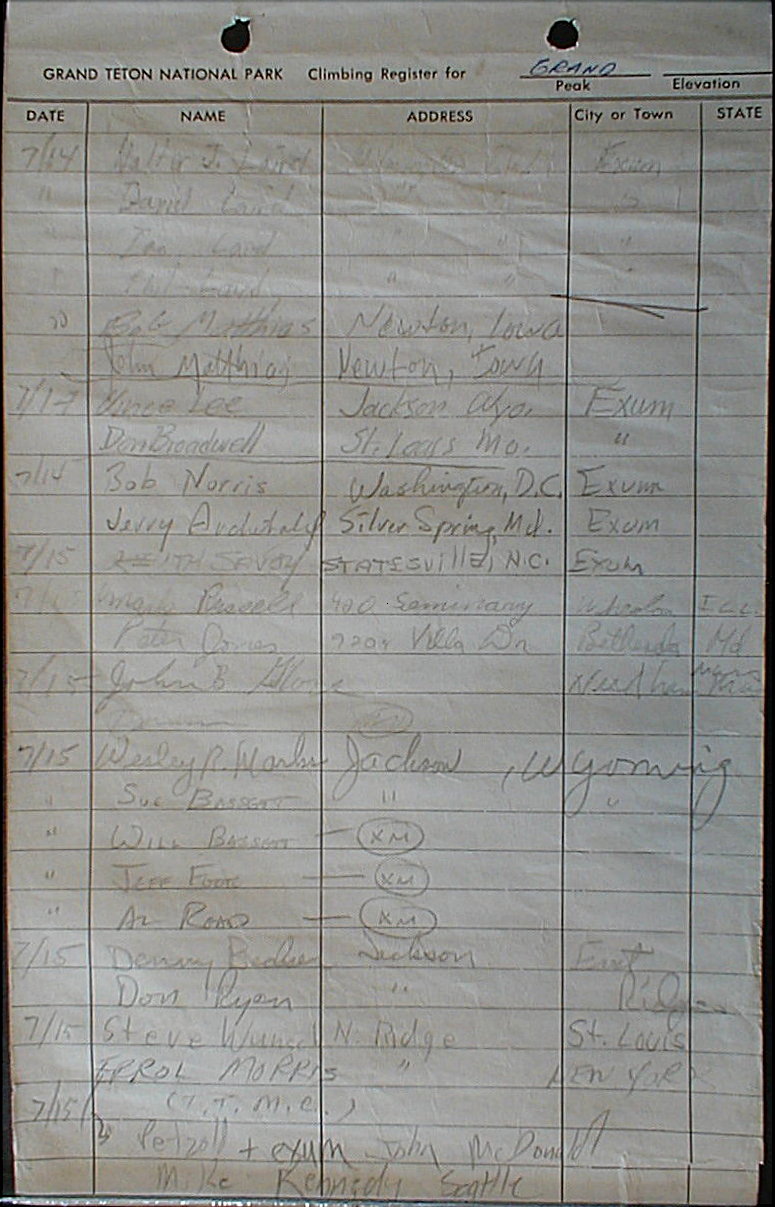 GRAND TETON NATIONAL PARK Climbing Register for GRAND
Peak Elevation
DATE NAME ADDRESS City or Town STATE
7/14 Walter J. Laird Exum
" David Laird " "
" Laird " "
" Laird " " "
" Bob Matthias Newton, Iowa
John Matthias Newton, Iowa
Vince Lee Jackson Wyo. Exum
Don Broadwell St. Louis Mo. "
7/14 Bob Norris Washington, D.C. Exum
Jerry Silver Spring, Md. Exum
7/15 KEITH SAVOY STATESVILLE, N.C. Exum
Russell 420 Seminary
Peter Jones Villa Dr. Bethesda Md
7/15 John B
7/15 Wesley R. Jackson, Wyoming
" SUE BASSETT " "
" WILL BASSETT — XM
" JEFF FOOTE — XM
" AL READ — XM
7/15 Denny Jackson East
Don Ryan " Ridge
7/15 Steve Wunsch N. Ridge St. Louis
ERROL MORRIS " NEW YORK
7/15 (T.T.M.C.)
Petzoldt + exum John McDonald
Mike Kennedy Seattle